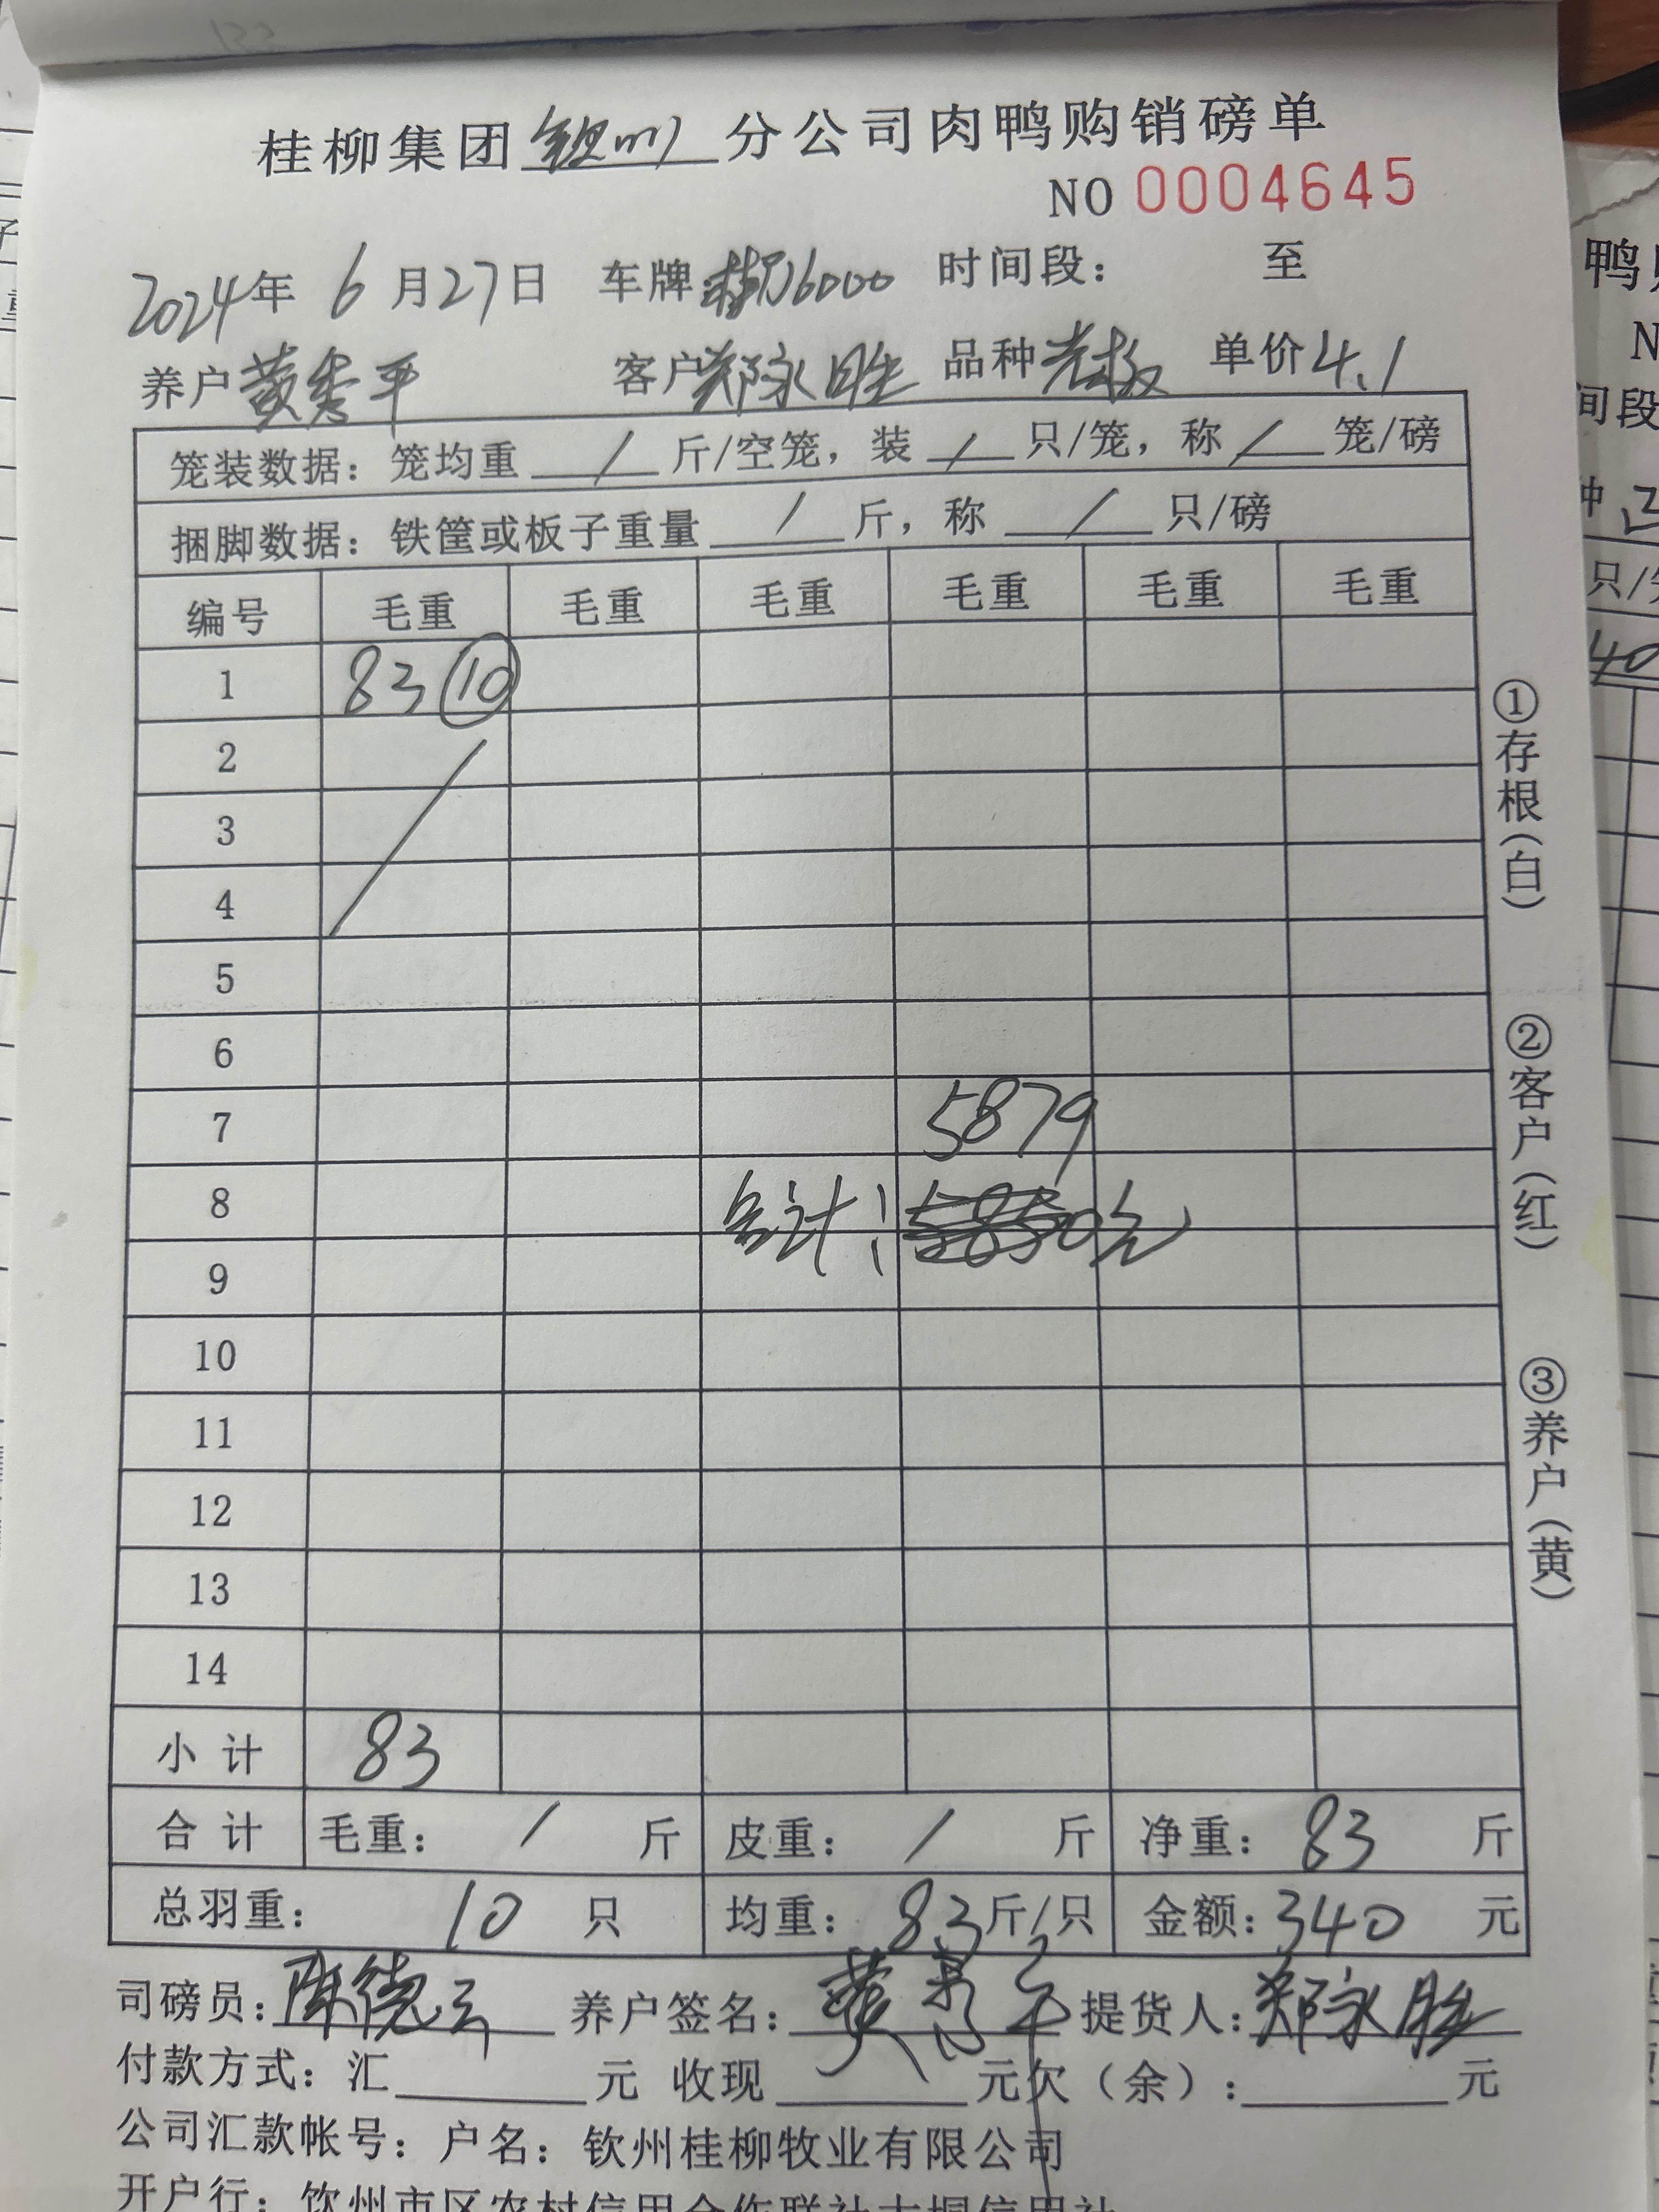 桂柳集团钦州分公司肉鸭购销磅单
NO 0004645
2024年 6月27日 车牌 时间段: 至
养户黄秀平 客户郑永胜 品种 单价4.1
笼装数据:笼均重 / 斤/空笼,装 / 只/笼,称 / 笼/磅
捆脚数据:铁筐或板子重量 / 斤,称 / 只/磅
编号 毛重 毛重 毛重 毛重 毛重 毛重
1 83 ⑩
2
3
4
5
6
7 5879
8 合计: 元
9
10
11
12
13
14
小计 83
合计 毛重: / 斤 皮重: / 斤 净重: 83 斤
总羽重: 10 只 均重: 8.3斤/只 金额:340 元
司磅员:陈德云 养户签名:黄秀平 提货人:郑永胜
付款方式:汇 元 收现 元欠(余): 元
公司汇款帐号:户名:钦州桂柳牧业有限公司
开户行:钦州市区农村信用合作联社大垌信用社
①存根(白)
②客户(红)
③养户(黄)